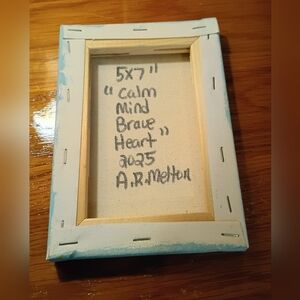 5x7"
"Calm
Mind
Brave
Heart"
2025
A.R.Melton